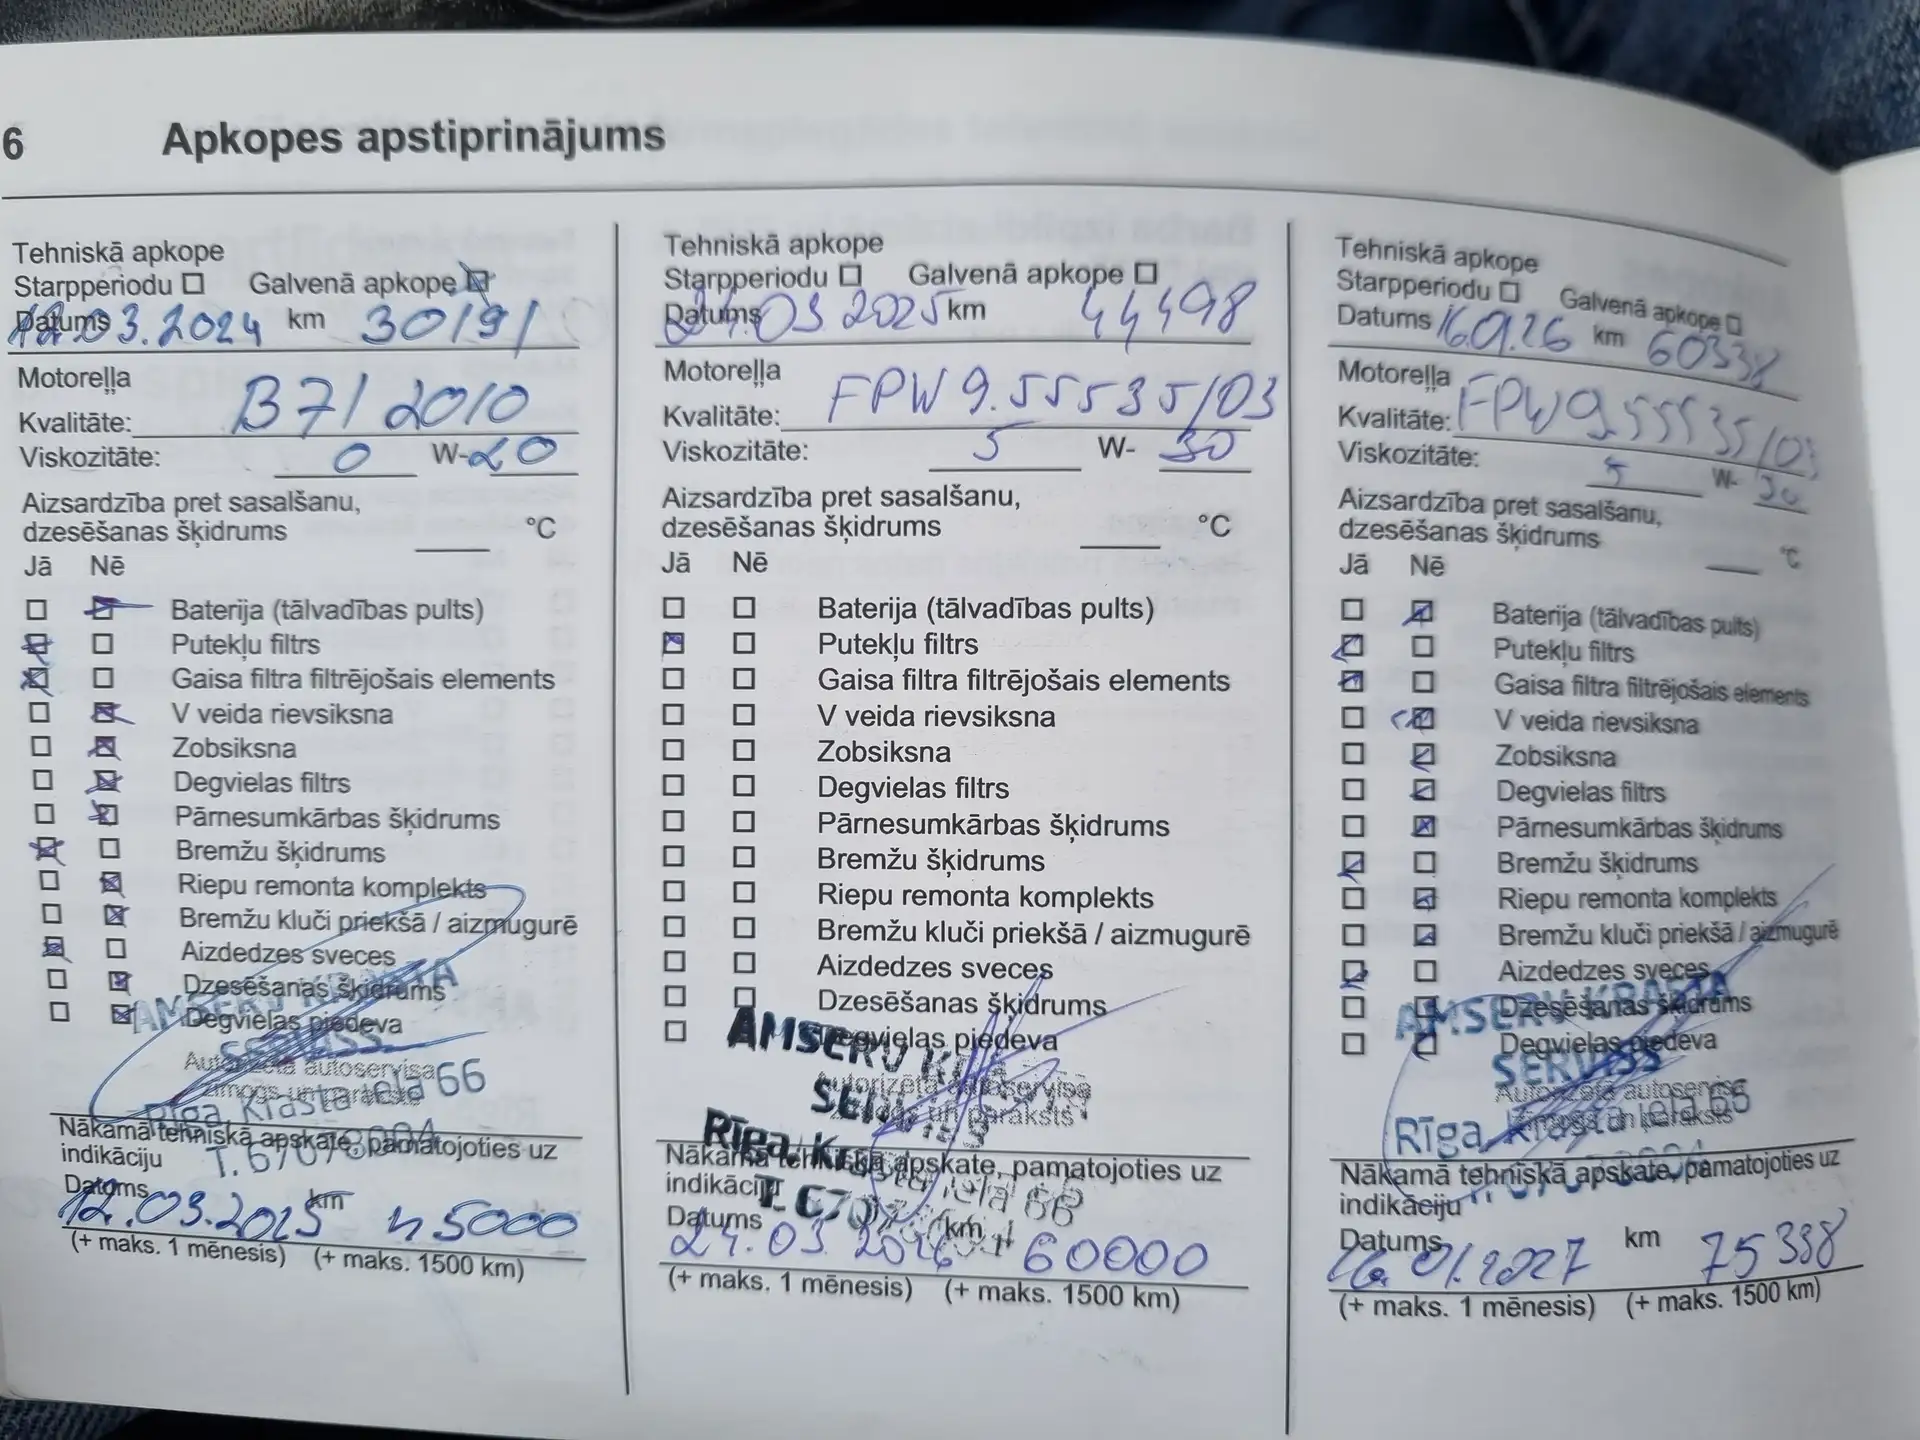 6 Apkopes apstiprinājums
Tehniskā apkope
Starpperiodu Galvenā apkope
Datums 12.03.2024 km 30191
Motoreļļa
Kvalitāte: B71 2010
Viskozitāte: 0 W-20
Aizsardzība pret sasalšanu,
dzesēšanas šķidrums °C
Jā Nē
Baterija (tālvadības pults)
Putekļu filtrs
Gaisa filtra filtrējošais elements
V veida rievsiksna
Zobsiksna
Degvielas filtrs
Pārnesumkārbas šķidrums
Bremžu šķidrums
Riepu remonta komplekts
Bremžu kluči priekšā / aizmugurē
Aizdedzes sveces
Dzesēšanas šķidrums
Degvielas piedeva
AMSERV KRASTA
SERVISS
Autorizēta autoservisa
zīmogs un paraksts
Rīga, Krasta iela 66
Nākamā tehniskā apskate, pamatojoties uz
indikāciju
Datums 12.03.2025 km 45000
(+ maks. 1 mēnesis) (+ maks. 1500 km)
Tehniskā apkope
Starpperiodu Galvenā apkope
Datums 24.03 2025 km 44498
Motoreļļa
Kvalitāte: FPW 9.55535/03
Viskozitāte: 5 W- 30
Aizsardzība pret sasalšanu,
dzesēšanas šķidrums °C
Jā Nē
Baterija (tālvadības pults)
Putekļu filtrs
Gaisa filtra filtrējošais elements
V veida rievsiksna
Zobsiksna
Degvielas filtrs
Pārnesumkārbas šķidrums
Bremžu šķidrums
Riepu remonta komplekts
Bremžu kluči priekšā / aizmugurē
Aizdedzes sveces
Dzesēšanas šķidrums
Degvielas piedeva
AMSERV
Autorizēta autoservisa
zīmogs un paraksts
Rīga, iela 66
Nākamā tehniskā apskate, pamatojoties uz
indikāciju
Datums 24.03 2026 km 60000
(+ maks. 1 mēnesis) (+ maks. 1500 km)
Tehniskā apkope
Starpperiodu Galvenā apkope
Datums 16.01.26 km 60338
Motoreļļa
Kvalitāte: FPW9.55535/03
Viskozitāte: 5 W- 30
Aizsardzība pret sasalšanu,
dzesēšanas šķidrums °C
Jā Nē
Baterija (tālvadības pults)
Putekļu filtrs
Gaisa filtra filtrējošais elements
V veida rievsiksna
Zobsiksna
Degvielas filtrs
Pārnesumkārbas šķidrums
Bremžu šķidrums
Riepu remonta komplekts
Bremžu kluči priekšā / aizmugurē
Aizdedzes sveces
Dzesēšanas šķidrums
Degvielas piedeva
AMSERV KRASTA
SERVISS
Autorizēta autoservisa
zīmogs un paraksts
Rīga, Krasta iela 66
Nākamā tehniskā apskate, pamatojoties uz
indikāciju
Datums 16.01.2027 km 75338
(+ maks. 1 mēnesis) (+ maks. 1500 km)